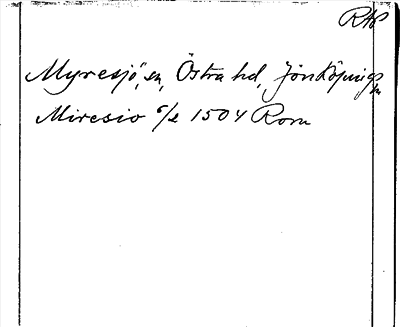 RAP
Myresjö, sn, Östra hd, Jönköpings ln
Miresio c/e 1504 Rom